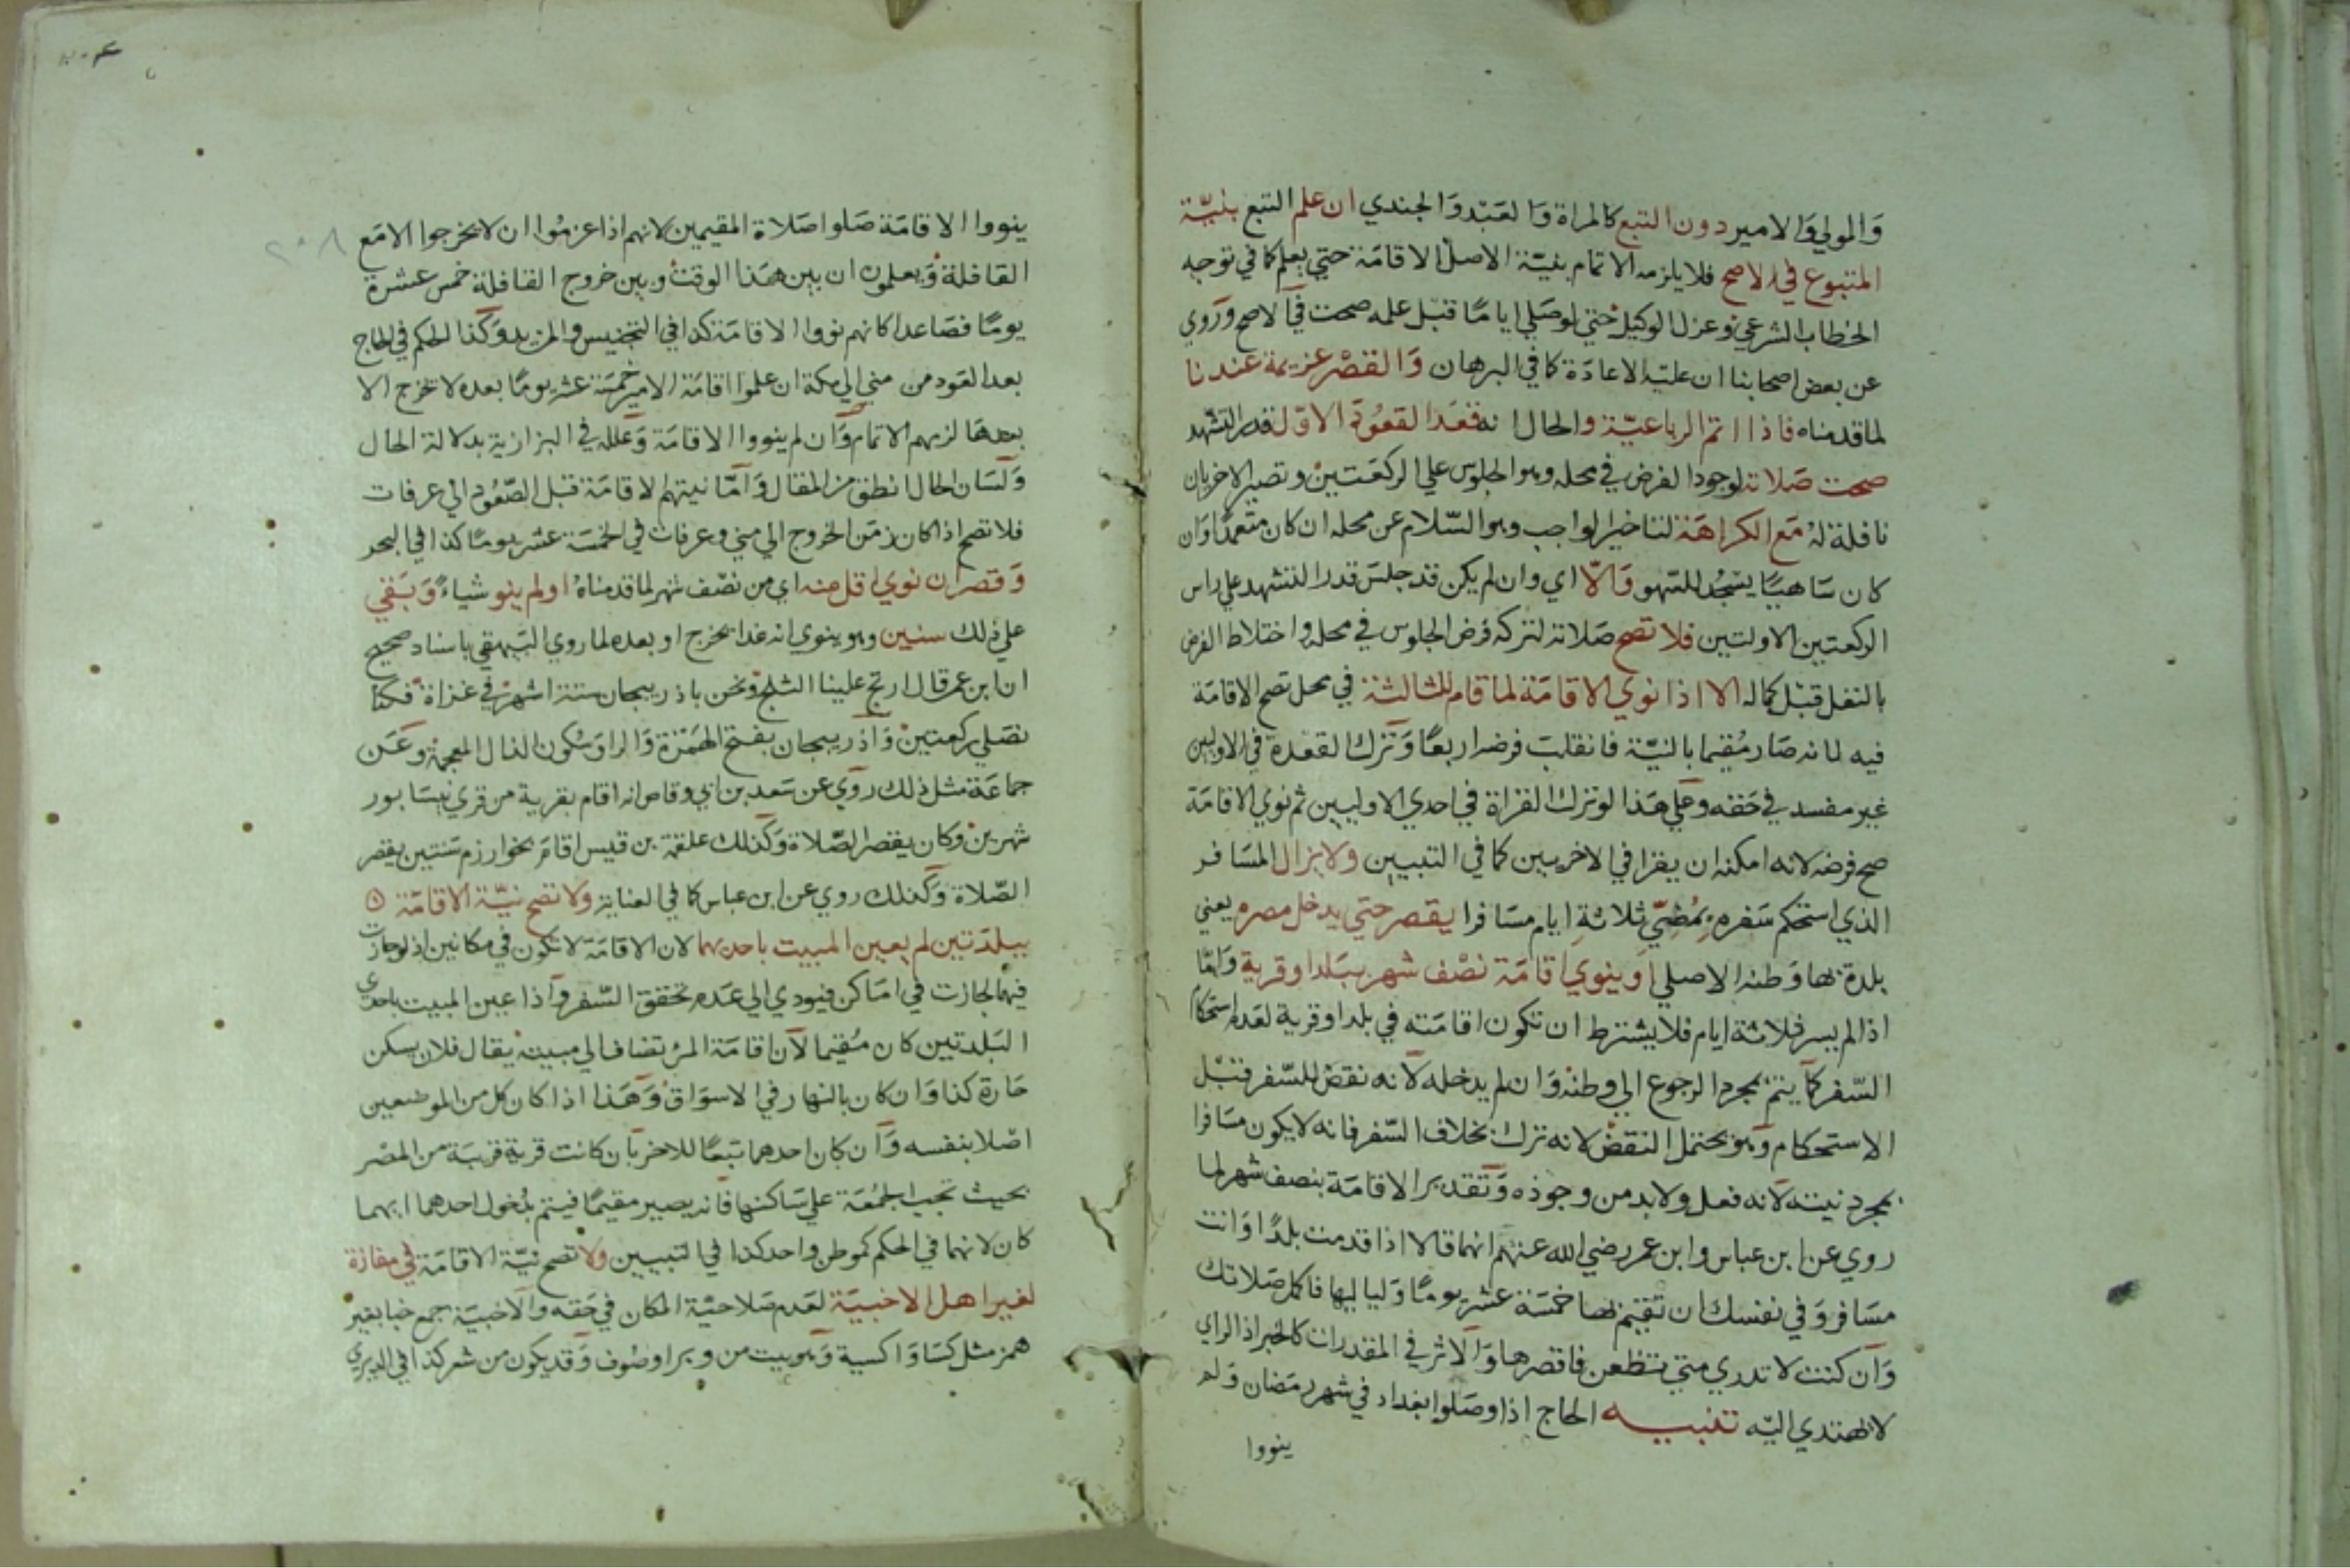 والمولي والامير دون التبع كالمراة والعبد والجندي ان علم التبع بنيّة
المتبوع في الاصح فلا يلزمه الاتمام بنيّة الاصل الاقامة حتي يعلم كما في توجه
الخطاب الشرعي وعزل الوكيل حتي لو صلي اياما قبل علمه صحت في الاصح وروي
عن بعض اصحابنا ان عليه الاعادة كما في البرهان والقصر عزيمة عندنا
لما قدمناه فاذا اتم الرباعيّة والحال انه قعد القعود الاول قدر التشهد
صحت صلاته لوجود الفرض في محله وهو الجلوس علي الركعتين وتصير الاخريان
نافلة له مع الكراهة لتاخير الواجب وهو السّلام عن محله ان كان متعمدا وان
كان ساهيا يسجد للسّهو والّا اي وان لم يكن قد جلس قدر التشهد علي راس
الركعتين الاولتين فلا تصح صلاته لتركه فرض الجلوس في محله واختلاط الفرض
بالنفل قبل كماله الا اذا نوي الاقامة لما قام للثالثة في محل تصح الاقامة
فيه لما نه صار مقيما بالنيّة فانقلب فرضه اربعا وترك القعدة في الاوليين
غير مفسد في حقه وعلي هذا لو ترك القراة في احدي الاوليين ثم نوي الاقامة
صح فرضه لانه امكنه ان يقرا في الاخريين كما في التبيين ولا يزال المسافر
الذي استحكم سفره بمُضِيّ ثلاثة ايام مسافرا يقصر حتي يدخل مصره يعني
بلدة بها وطنه الاصلي او ينوي اقامة نصف شهر ببلد او قرية وامّا
اذا لم يسر ثلاثة ايام فلا يشترط ان تكون اقامته في بلد او قرية لعدم استحكام
السّفر كما يتم بمجرد الرجوع الي وطنه وان لم يدخله لانه نقض للسّفر قبل
الاستحكام وهو يحتمل النقض لانه ترك بخلاف السّفر فانه لا يكون مسافرا
بمجرد نيته لانه فعل ولا بد من وجوده وتقدير الاقامة بنصف شهر لما
روي عن ابن عباس وابن عمر رضي الله عنهم انهما قالا اذا قدمت بلدا وانت
مسافر وفي نفسك ان تقيم بها خمسة عشر يوما ولياليها فاكمل صلاتك
وان كنت لا تدري متي تظعن فاقصرها والاثر في المقدرات كالخبر اذ الراي
لا يهتدي اليه تنبيه الحاج اذا وصلوا بغداد في شهر رمضان ولم
ينووا
ينووا الاقامة صلوا صلاة المقيمين لانهم اذا عزموا ان لا يخرجوا الا مع
القافلة ويعلمون ان بين هذا الوقت وبين خروج القافلة خمس عشرة
يوما فصاعدا كانهم نووا الاقامة كذا في التجنيس والمزيد وكذا الحكم في الحاج
بعد العود من مني الي مكة ان علموا اقامة الامير خمسة عشر يوما بعده لا تخرج الا
بعدها لزمهم الاتمام وان لم ينووا الاقامة وعلله في البزازية بدلالة الحال
ولسان الحال انطق من المقال وامّا نيتهم الاقامة قبل الصّعود الي عرفات
فلا تصح اذا كان زمن الخروج الي مني وعرفات في الخمسة عشر يوما كذا في البحر
وقصر ان نوي اقل منه اي من نصف شهر لما قدمناه او لم ينو شياء وبقي
علي ذلك سنين وهو ينوي انه غدا يخرج او بعده لما روي البيهقي باسناد صحيح
ان ابن عمر قال ارتج علينا الثلج ونحن باذربيجان ستة اشهر في غزاة فكنا
نصلي ركعتين واذربيجان بفتح الهمزة والرا وسكون الذال المعجمة وعن
جماعة مثل ذلك روي عن سعد بن ابي وقاص انه اقام بقرية من قري نيسابور
شهرين وكان يقصر الصّلاة وكذلك علقمة بن قيس اقام بخوارزم سنتين يقصر
الصّلاة وكذلك روي عن ابن عباس كما في العناية ولا تصح نيّة الاقامة
ببلدتين لم يعين المبيت باحديهما لان الاقامة لا تكون في مكانين اذ لو جازت
فيهما لجازت في اماكن فيودي الي عدم تحقق السّفر واذا عين المبيت باحدي
البلدتين كان مقيما لان اقامة المرء تضاف الي مبيته يقال فلان يسكن
حارة كذا وان كان بالنهار في الاسواق وهذا اذا كان كل من الموضعين
اصلا بنفسه وان كان احدهما تبعا للاخر بان كانت قرية قريبة من المصر
بحيث تجب الجمعة علي ساكنها فانه يصير مقيما فيتم بدخول احدهما ايهما
كان لانهما في الحكم كموطن واحد كذا في التبيين ولا تصح نيّة الاقامة في مفازة
لغير اهل الاخبية لعدم صلاحيّة المكان في حقه والاخبية جمع خبا بغير
همز مثل كسا واكسية وهو بيت من وبر او صوف وقد يكون من شعر كذا في
٢٠٨